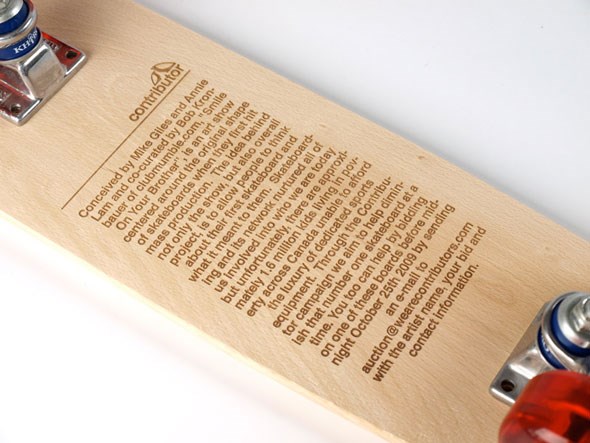 contributor
Conceived by Mike Giles and Annie
Lam and co-curated by Bob Kron-
bauer of clubmumble.com, "Smile
On Your Brother" is an art show
centered around the original shape
of skateboards when they first hit
mass production. The idea behind
not only the show, but also overall
project, is to allow people to think
about their first skateboard and
what it meant to them. Skateboard-
ing and its network nurtured all of
us involved into who we are today,
but unfortunately, there are approxi-
mately 1.6 million kids living in pov-
erty across Canada unable to afford
the luxury of dedicated sports
equipment. Through the Contribu-
tor campaign we aim to help dimin-
ish that number one skateboard at a
time. You too can help by bidding
on one of these boards before mid-
night October 25th 2009 by sending
an e-mail to
auction@wearecontributors.com
with the artist name, your bid and
contact information.